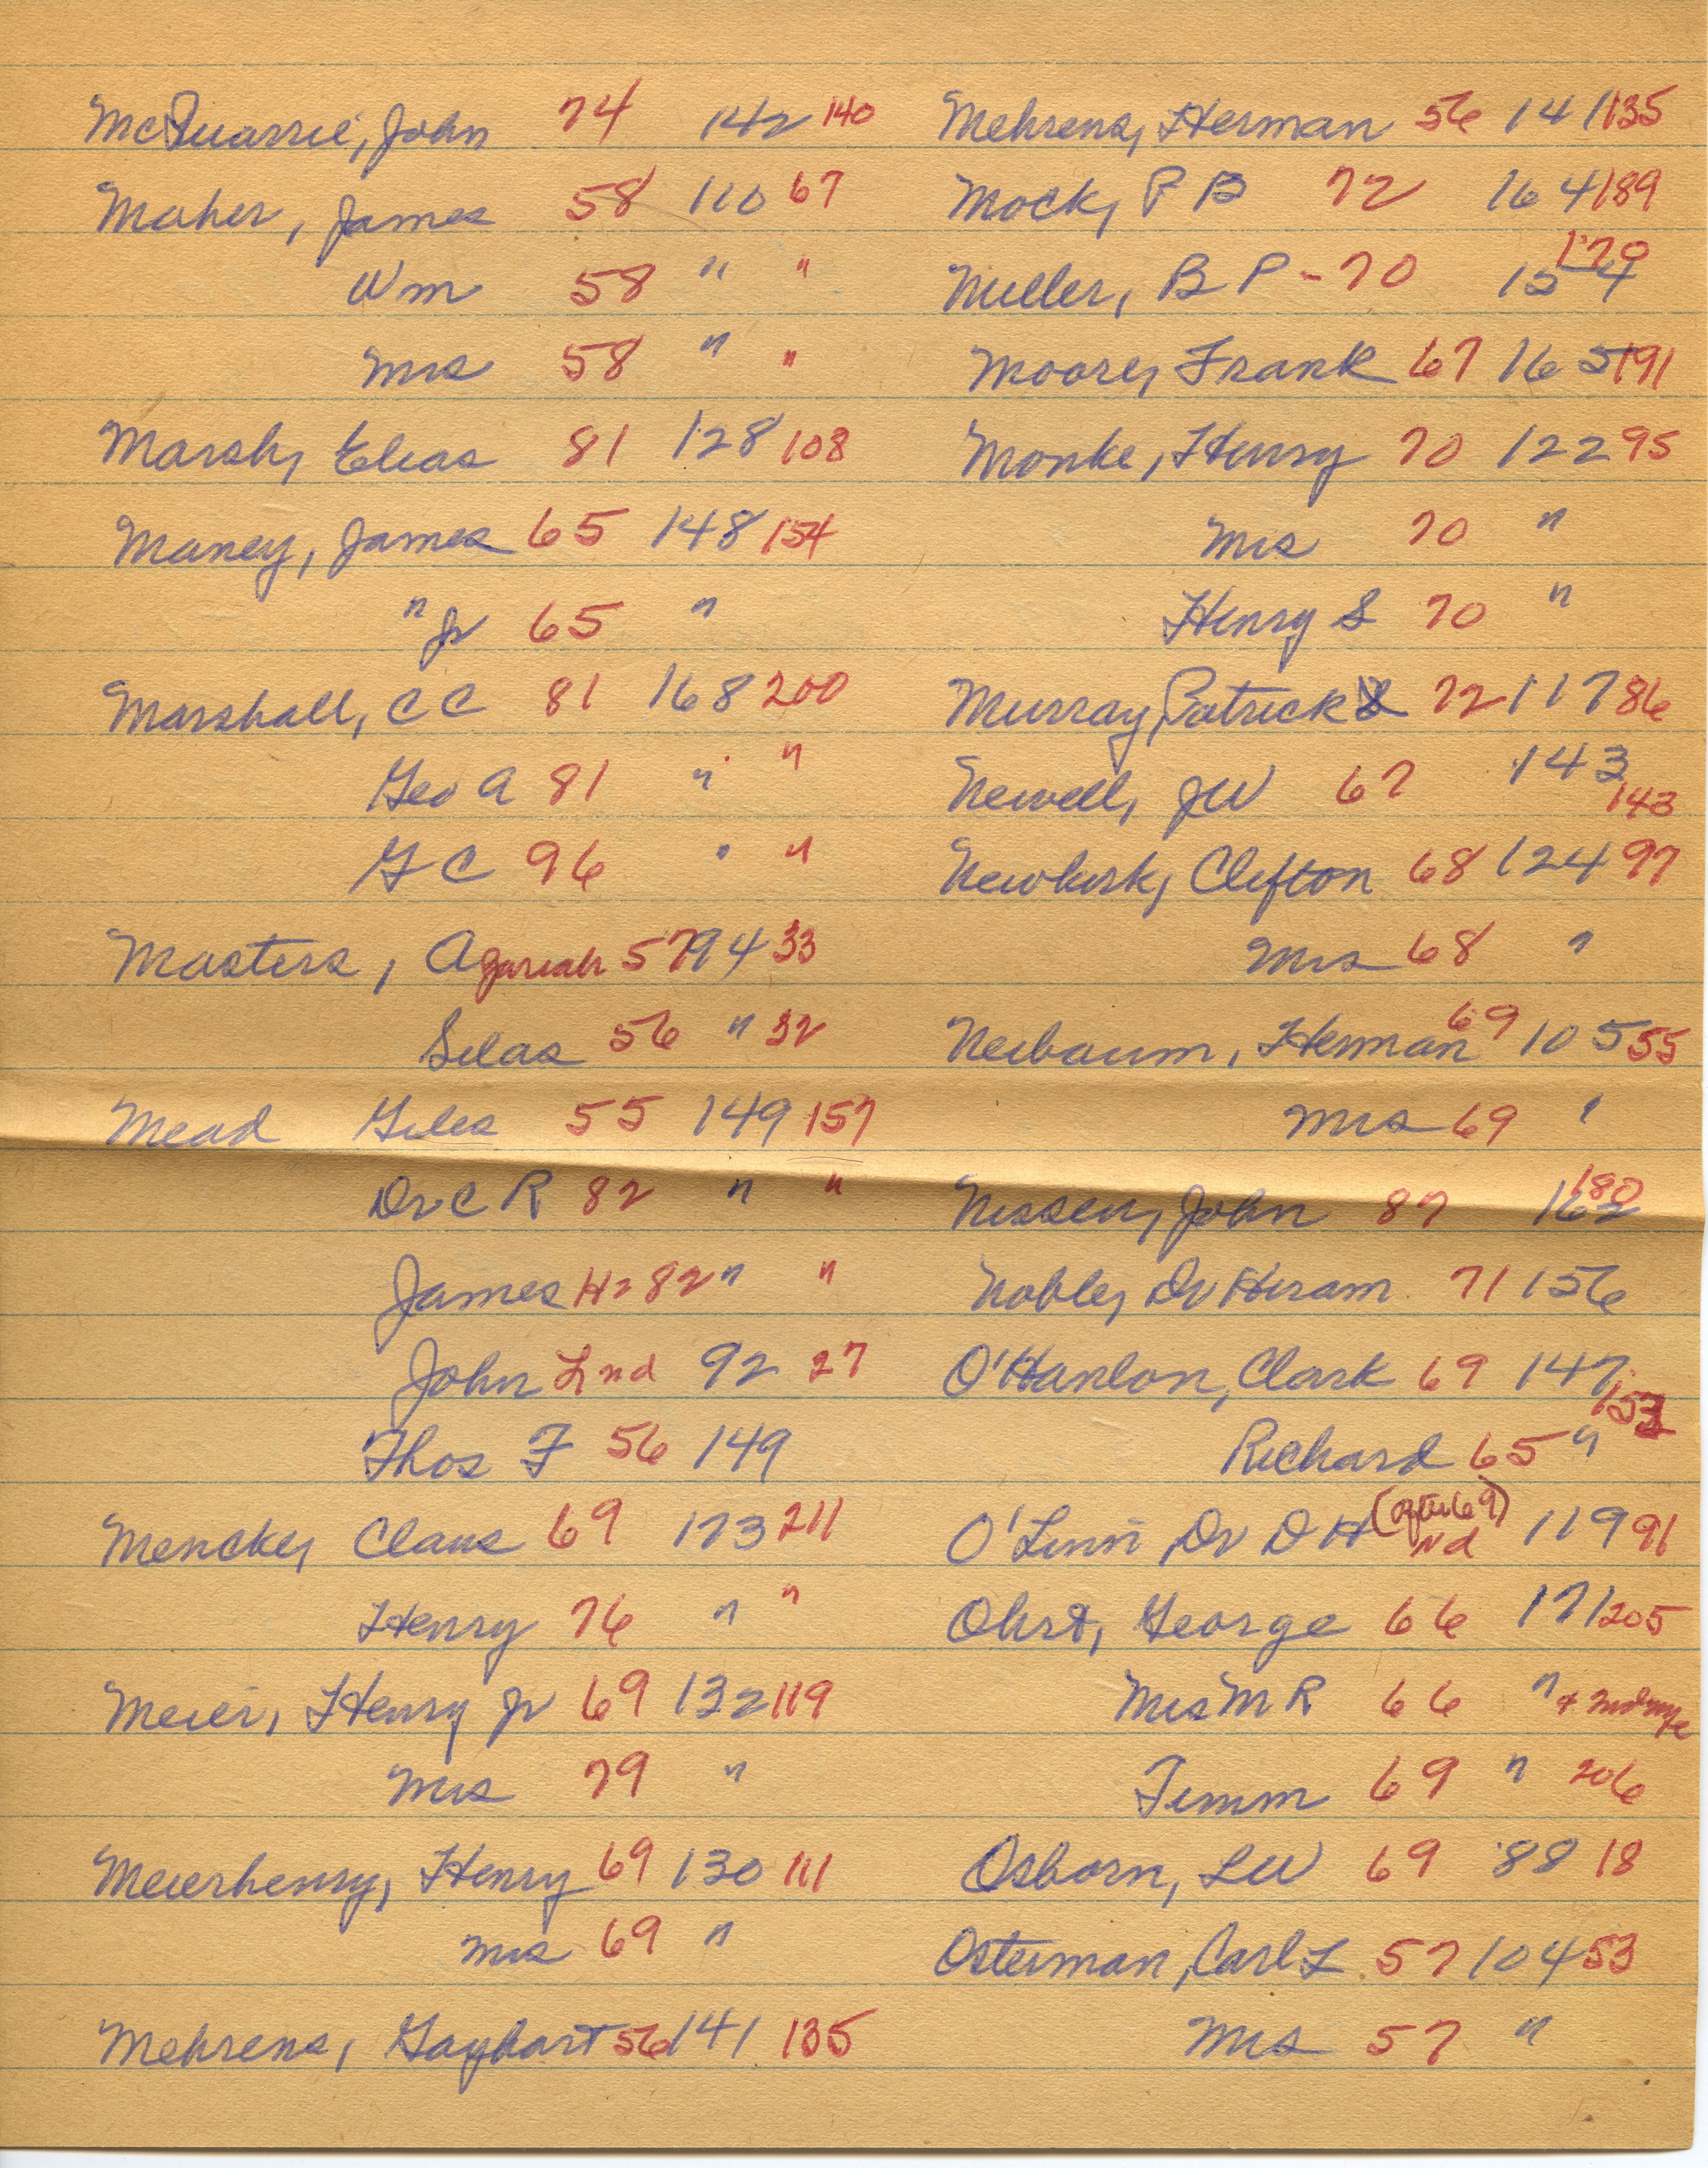 McQuarrie, John 74 142 140
Maher, James 58 110 67
Wm 58 " "
Mrs 58 " "
Marsh, Elias 81 128 108
Maney, James 65 148 154
" Jr 65 "
Marshall, C C 81 168 200
Geo A 81 " "
G C 96 " "
Masters, Azariah 57 94 33
Silas 56 " 32
Mead Giles 55 149 157
Dr C R 82 " "
James H 82 " "
John L nd 92 27
Thos F 56 149
Mencke, Claus 69 173 211
Henry 76 " "
Meier, Henry Jr 69 132 119
Mrs 79 "
Meierhenry, Henry 69 130 111
Mrs 69 "
Mehrens, Gayhart 56 141 135
Mehrens, Herman 56 141 135
Mock, P B 72 164 189
Miller, B P - 70 154 170
Moore, Frank 67 165 191
Monke, Henry 70 122 95
Mrs 70 "
Henry S 70 "
Murray, Patrick 72 117 86
Newell, J W 67 143 143
Newkirk, Clifton 68 124 97
Mrs 68 "
Neibaum, Herman 69 105 55
Mrs 69 "
Nissen, John 87 162 180
Noble, Dr Hiram 71 156
O'Hanlon, Clark 69 147 152
Richard 65 "
O'Linn, Dr D H (after 69) nd 119 91
Ohrt, George 66 171 205
Mrs M R 66 " +
Timm 69 " 206
Osborn, L W 69 88 18
Osterman, Carl L 57 104 53
Mrs 57 "